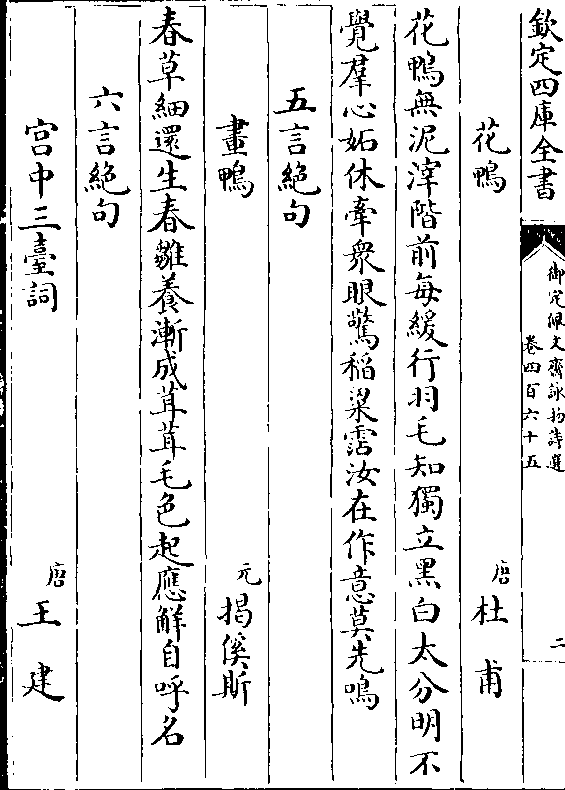 欽定四庫全書
御定佩文齋詠物詩選
卷四百六十五
二
花鴨
唐
杜甫
花鴨無泥滓階前每緩行羽毛知獨立黑白太分明不
覺羣心妬休牽衆眼驚稻粱霑汝在作意莫先鳴
五言絶句
畫鴨
元
揭傒斯
春草細還生春雛養漸成茸茸毛色起應解自呼名
六言絶句
宫中三臺詞
唐
王建